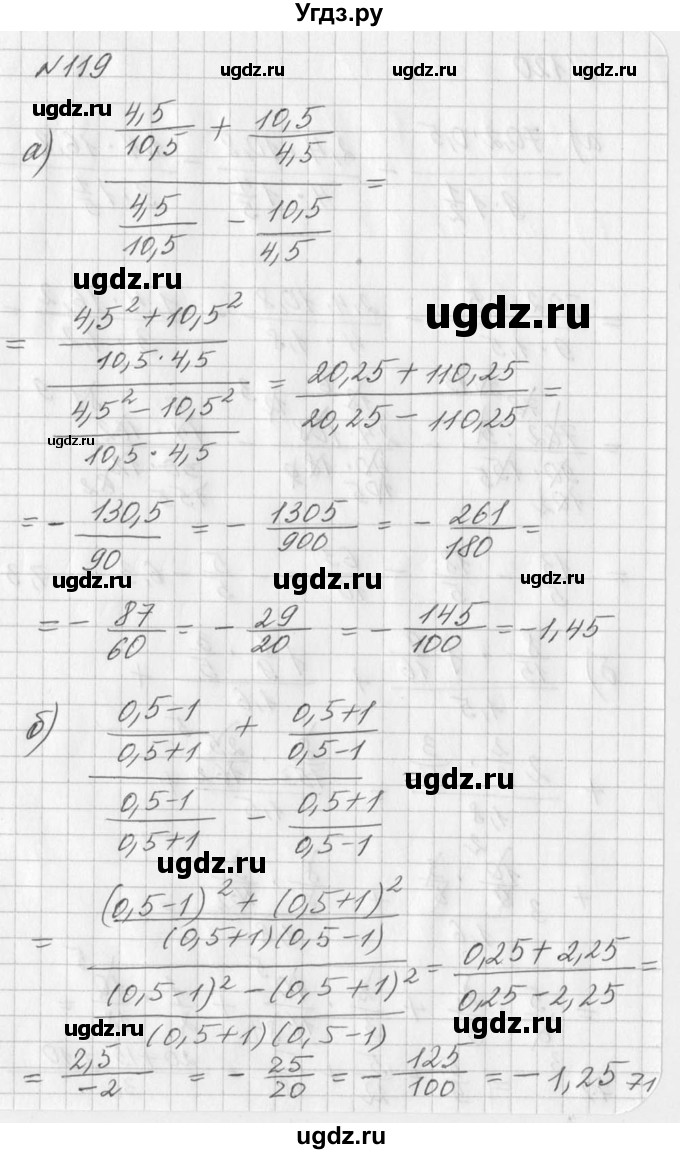 Угдз.ру
№119
ugdz.ru ugdz.ru ugdz.ru
ugdz.ru
а) (4,5/10,5 + 10,5/4,5) / (4,5/10,5 - 10,5/4,5) =
ugdz.ru
ugdz.ru
= ((4,5² + 10,5²)/(10,5 · 4,5)) / ((4,5² - 10,5²)/(10,5 · 4,5)) = (20,25 + 110,25)/(20,25 - 110,25) =
ugdz.ru
= - 130,5/90 = - 1305/900 = - 261/180 =
ugdz.ru ugdz.ru ugdz.ru
= - 87/60 = - 29/20 = - 145/100 = -1,45
б) ((0,5-1)/(0,5+1) + (0,5+1)/(0,5-1)) / ((0,5-1)/(0,5+1) - (0,5+1)/(0,5-1))
ugdz.ru
ugdz.ru
= (((0,5-1)² + (0,5+1)²)/((0,5+1)(0,5-1))) / (((0,5-1)² - (0,5+1)²)/((0,5+1)(0,5-1))) = (0,25 + 2,25)/(0,25 - 2,25) =
ugdz.ru ugdz.ru
= 2,5/-2 = - 25/20 = - 125/100 = -1,25 71
ugdz.ru